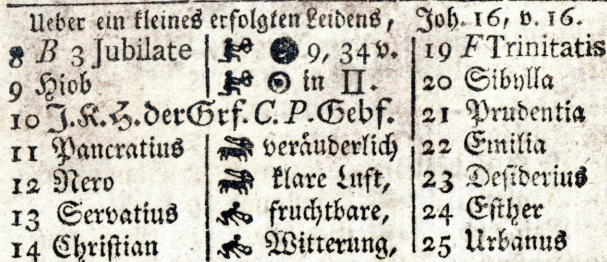 Ueber ein kleines erfolgten Leidens, Joh. 16, v. 16.
8 B 3 Jubilate ● 9, 34 v. 19 F Trinitatis
9 Hiob ☉ in II. 20 Sibylla
10 J. K. H. der Grf. C. P. Gebf. 21 Prudentia
11 Pancratius veräuderlich 22 Emilia
12 Nero klare Luft, 23 Desiderius
13 Servatius fruchtbare, 24 Esther
14 Christian Witterung, 25 Urbanus